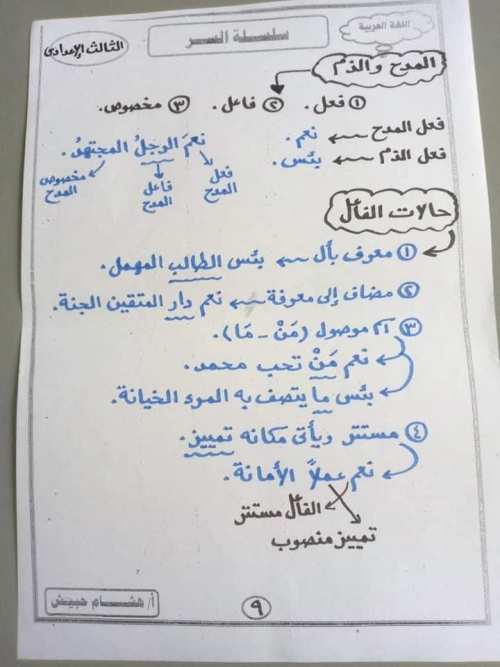 اللغة العربية
سلسلة السر
الثالث الإعدادى
المدح والذم
① فعل. ② فاعل. ③ مخصوص.
فعل المدح ← نعم.
فعل الذم ← بئس.
نعمَ الرجلُ المجتهدُ.
فعل المدح
فاعل المدح
مخصوص المدح
حالات الفاعل
① معرف بأل ← بئس الطالب المهمل.
② مضاف إلى معرفة ← نعم دار المتقين الجنة.
③ اسم موصول (مَنْ - مَا).
← نعم مَنْ تحب محمد.
← بئس ما يتصف به المرء الخيانة.
④ مستتر ويأتى مكانه تمييز.
نعم عملاً الأمانة.
الفاعل مستتر
تمييز منصوب
٩
أ/ هشام حبيش